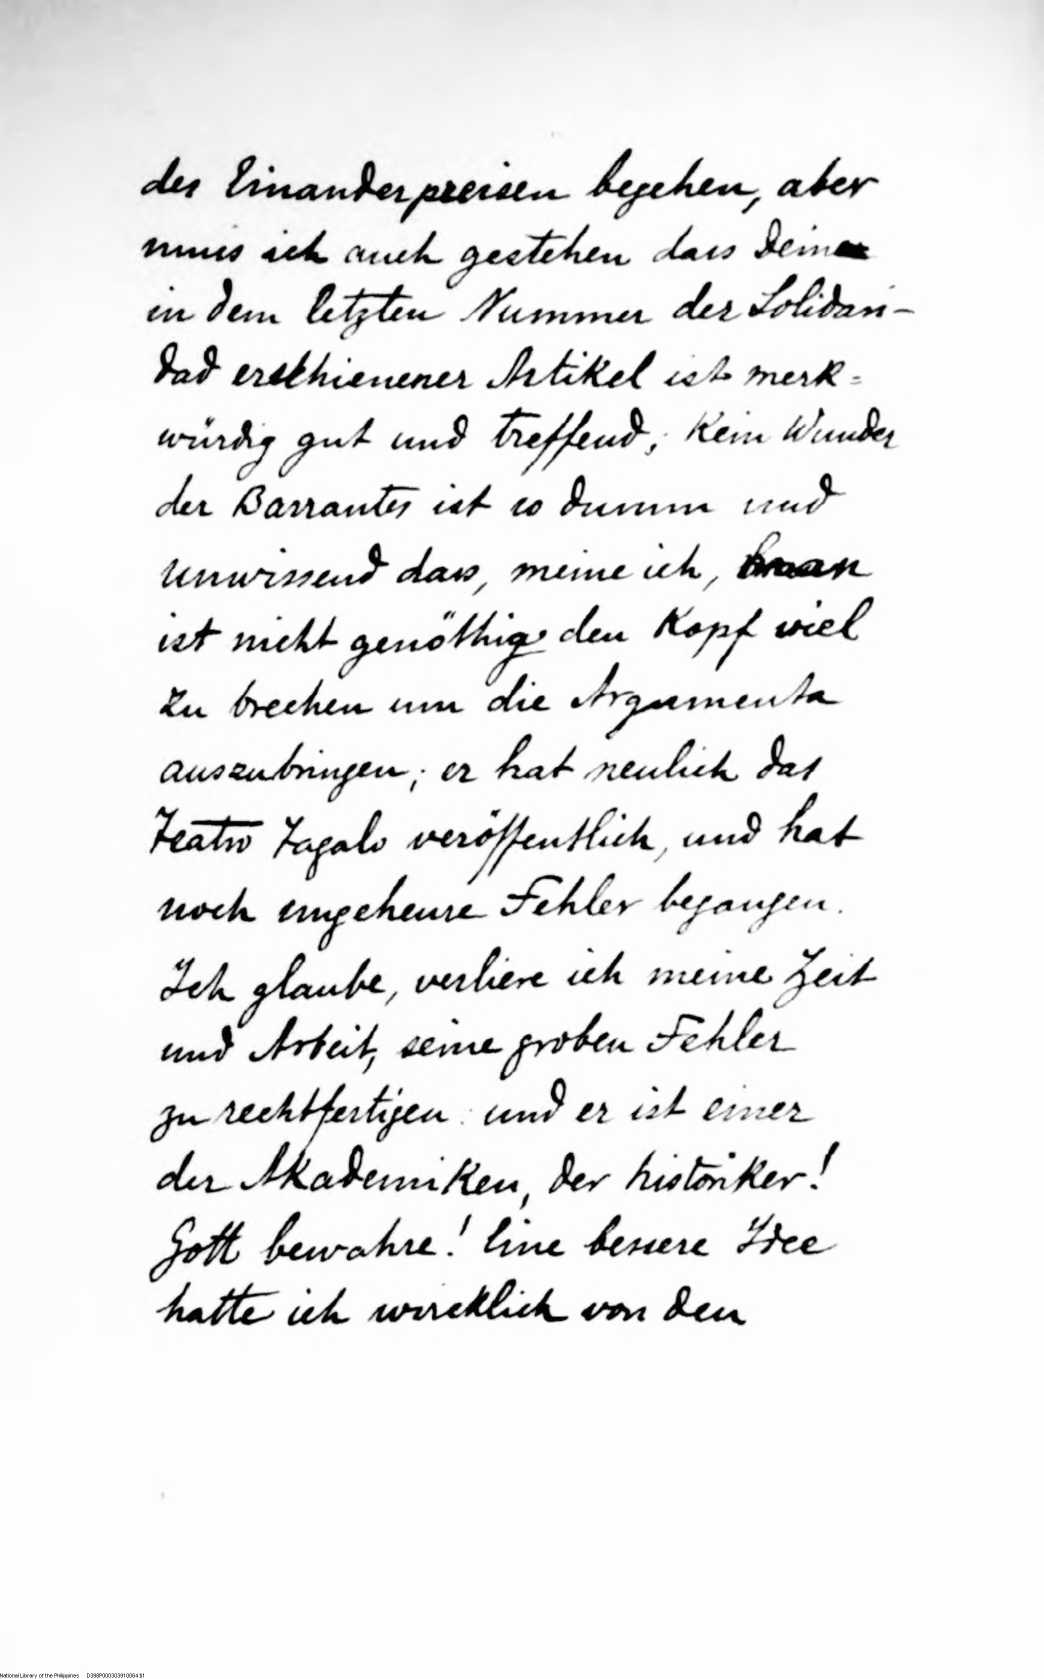 des Einanderpreisen begehen, aber
muss ich auch gestehen dass Dein
in dem letzten Nummer der Solidari-
dad erschienener Artikel ist merk-
würdig gut und treffend; Kein Wunder
der Barrantes ist so dumm und
unwissend dass, meine ich, man
ist nicht genöthig den Kopf viel
zu brechen um die Argumenta
auszubringen; er hat neulich das
Teatro Tagalo veröffentlich, und hat
noch ungeheure Fehler begangen.
Ich glaube, verliere ich meine Zeit
und Arbeit, seine groben Fehler
zu rechtfertigen: und er ist einer
der Akademiken, der historiker!
Gott bewahre! Eine bessere Idee
hatte ich wircklich von den
National Library of the Philippines